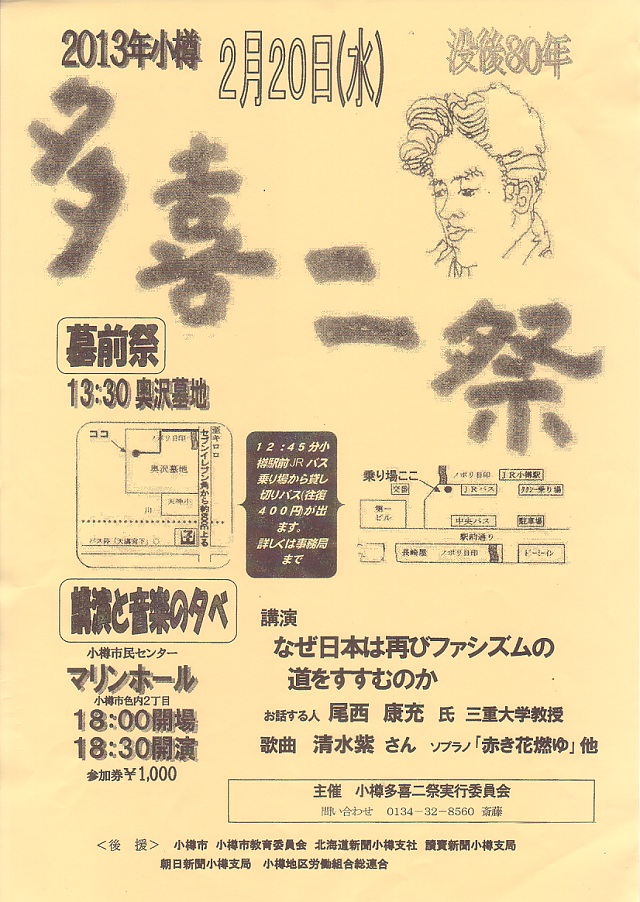 2013年小樽
2月20日(水)
没後80年
多喜二祭
墓前祭
13:30 奥沢墓地
ココ
ノボリ目印
奥沢墓地
天神小
川
バス停「天満宮下」
セブンイレブン角から約800m上る
至キロロ
12:45分小
樽駅前JRバス
乗り場から貸し
切りバス(往復
400円)が出
ます。
詳しくは事務局
まで
乗り場ここ
ノボリ目印
JR小樽駅
交番
JRバス
タクシー乗り場
第一
ビル
中央バス
駐車場
駅前通り
長崎屋
ノボリ目印
ドーミーイン
講演と音楽の夕べ
小樽市民センター
マリンホール
小樽市色内2丁目
18:00開場
18:30開演
参加券¥1,000
講演
なぜ日本は再びファシズムの
道をすすむのか
お話する人 尾西 康充 氏 三重大学教授
歌曲 清水紫 さん ソプラノ「赤き花燃ゆ」他
主催 小樽多喜二祭実行委員会
問い合わせ 0134-32-8560 斎藤
<後 援> 小樽市 小樽市教育委員会 北海道新聞小樽支社 讀賣新聞小樽支局
朝日新聞小樽支局 小樽地区労働組合総連合